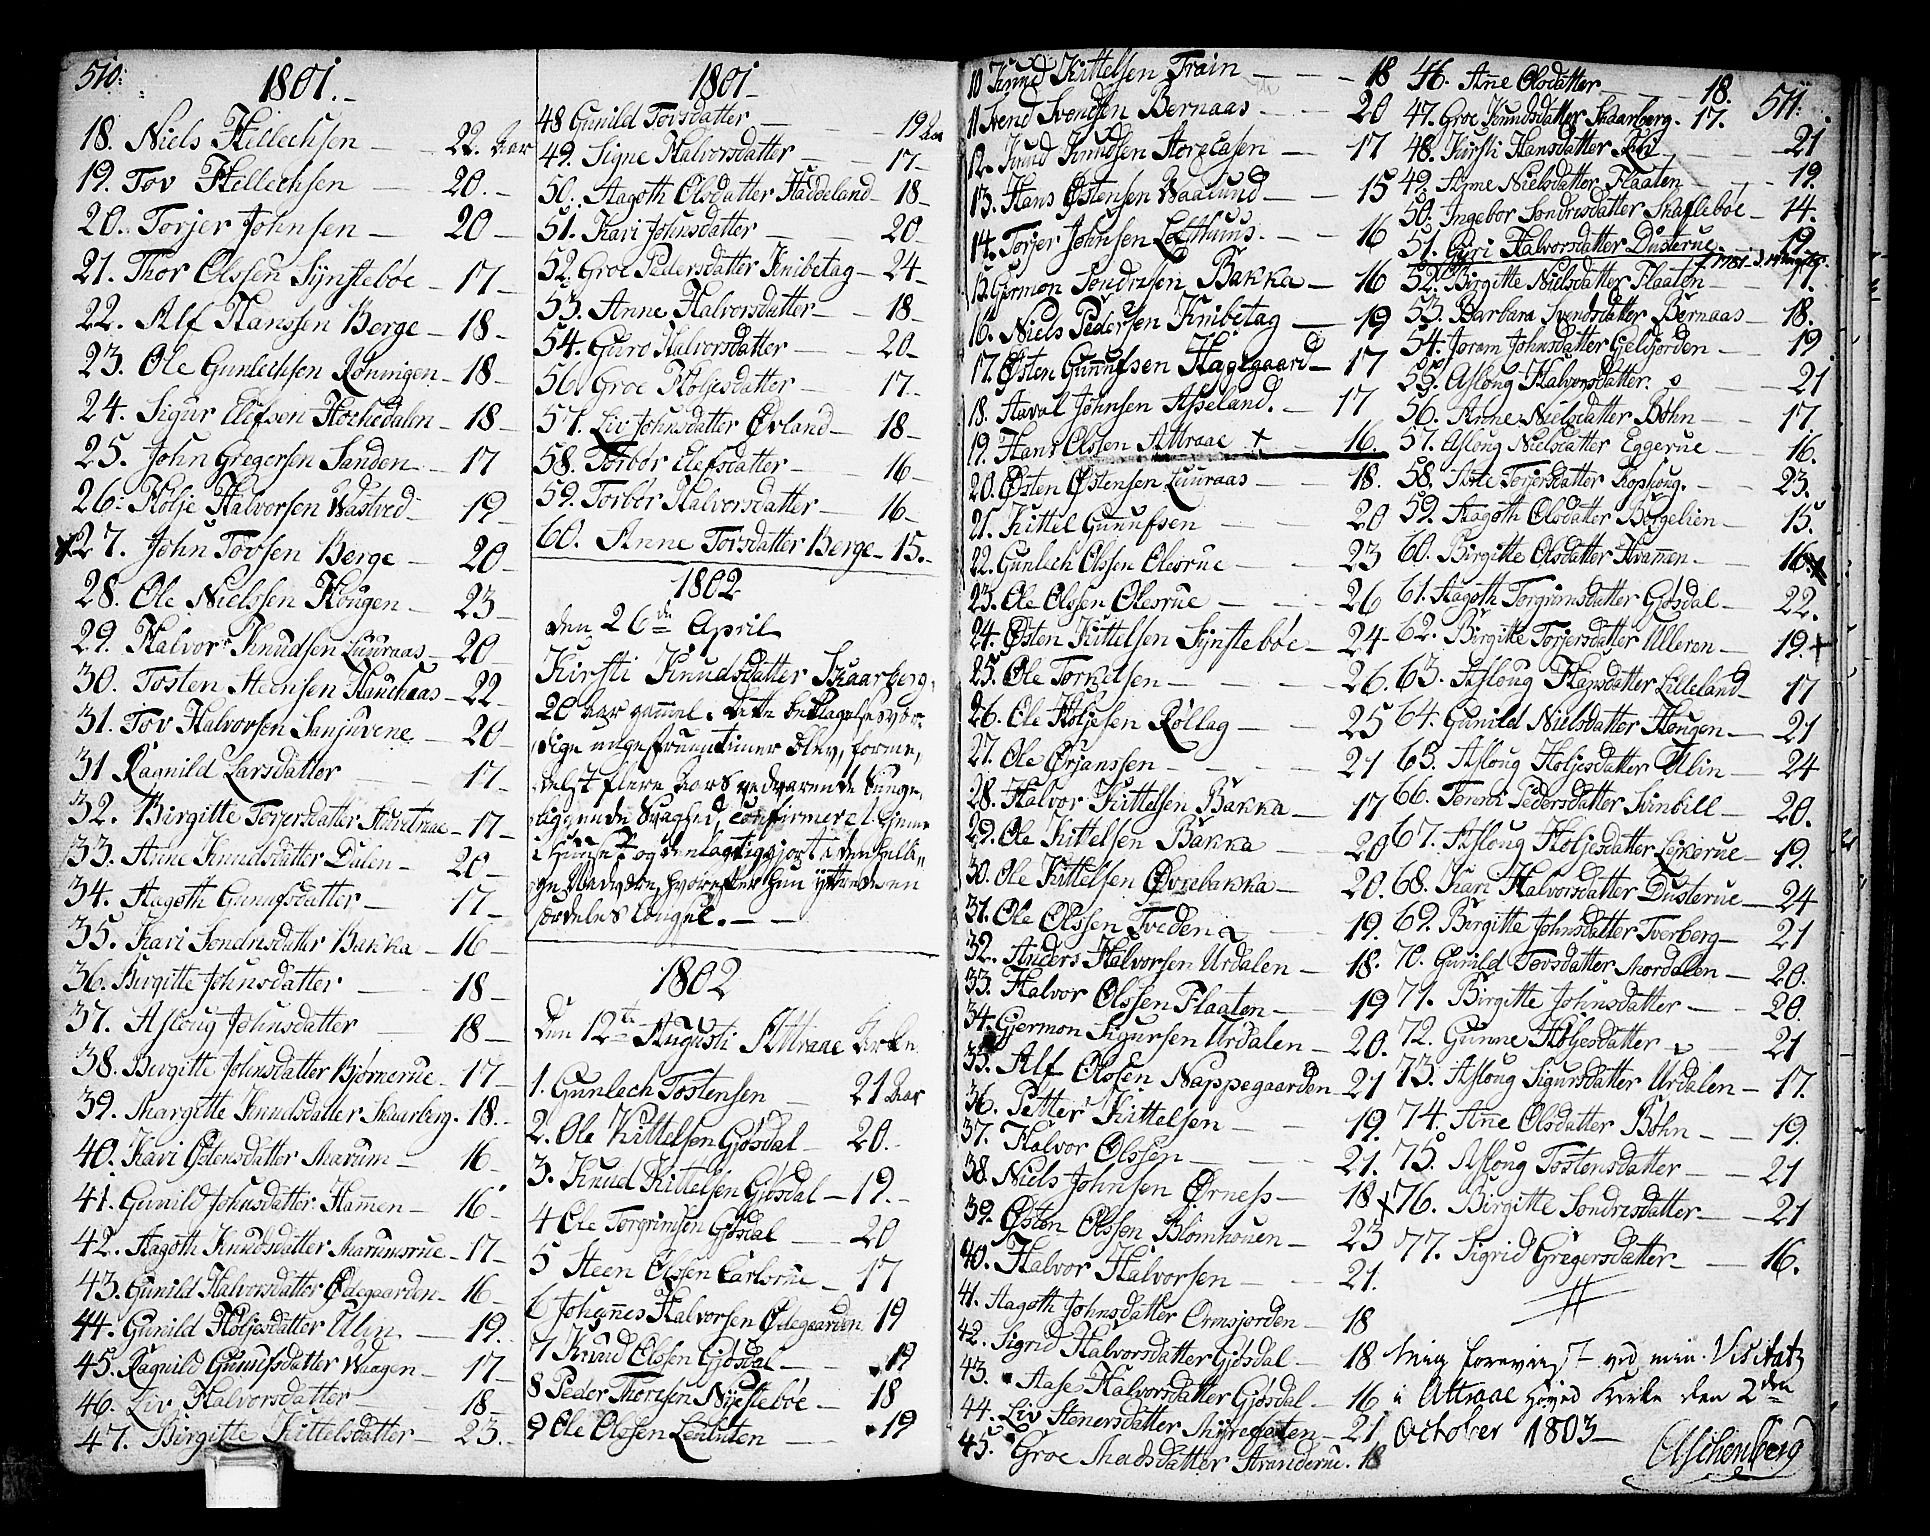 510.
1801.
18. Niels Hellechsen — 22. Aar
19. Tov Hellechsen — 20.
20. Torjer Johnsen — 20
21. Thor Olssen Synstebøe — 17
22. Alf Hanssen Berge — 18
23. Ole Gunlechsen Røningen — 18
24. Sigur Elefsen — 18
25. John Gregersen Sanden — 17
26. Holje Halvorsen Wastved — 19
27. John Tovsen Berge — 20
28. Ole Nielssen Hougen — 23
29. Halvor Knudsen Luuraas — 20
30. Tosten Steensen — 22
31. Tov Halvorsen — 20
31 Ragnild Larsdatter — 17
32. Birgitte Torjersdatter — 17
33. Anne Knudsdatter Dalen — 20
34. Aagoth Gunufsdatter — 17
35. Kari Sondresdatter Bakka — 16
36. Birgitte Johnsdatter — 18
37. Asloug Johnsdatter — 18
38. Birgitte Johnsdatter Bjørnerue — 17
39. Margitte Knudsdatter Skaarberg. 18.
40. Kari Østensdatter Marum — 16
41. Gunild Johnsdatter Hamen — 16
42. Aagoth Knudsdatter Marumsrue — 17
43. Gunild Halvorsdatter Ødegaarden — 16
44. Gunild Holjesdatter Ulin — 19.
45. Ragnild Gunufsdatter Waagen — 17
46. Liv Halvorsdatter — 18
47. Birgitte Kittelsdatter — 23.
1801
48 Gunild Tovsdatter — 19 Aar
49. Signe Halvorsdatter — 17
50. Aagoth Olsdatter Haddeland — 18
51. Kari Johnsdatter — 20
52. Groe Pedersdatter Knibetag — 24
53. Anne Halvorsdatter — 18
54. Guro Halvorsdatter — 20
56. Groe Holjesdatter — 17.
57. Liv Johnsdatter Øvland — 18
58. Torbør Elefsdatter — 16
59. Torbør Halvorsdatter — 16
60. Anne Torsdatter Berge — 15.
1802
den 26de April
Kirsti Knudsdatter Skaarberg,
20 Aar gammel. Dette beklagelsesvær-
dige unge Fruentimmer blev, forme-
delst flere Aars vedvarende
Svaghed, confirmeret hjemme
i Huuset og deelagtiggjort i den helli-
ge Nadvere, hvorefter hun yttrede en
særdeles Længsel. —
1802
den 12te Augusti Attraae Kirke
1. Gunlech Tostensen — 21 Aar
2. Ole Kittelsen Gjøsdal — 20.
3. Knud Kittelsen Gjøsdal — 19.
4 Ole Torgrimsen Gjøsdal — 20
5 Steen Olssen Carlsrue — 17
6 Johannes Halvorsen Ødegaarden 19
7 Knud Olssen Gjøsdal — 19
8 Peder Thorsen — 18
9 Ole Olssen — 19
10 Knud Kittelsen Train — 18
11 Svend Svendsen Bernaas — 20
12. Knud Knudsen — 17
13. Hans Østensen Waalund — 15
14. Torjer Johnsen Lofthuus. — 16
15. Germon Sondresen Bakka — 16
16. Niels Pedersen Knibetag — 19
17. Østen Gunufsen Haglgaard — 17
18. Aaval Johnsen Asseland. — 17
19. Hans Olssen Attraae + — 16.
20. Østen Østensen Luuraas — 18.
21. Kittel Gunufsen — 20
22. Gunlech Olssen Olesrue — 23
23. Ole Olssen Olesrue — 26
24. Østen Kittelsen Synstebøe — 24
25. Ole Torkelsen — 26.
26. Ole Holjesen Rollag — 25
27. Ole Ørjanssen — 21
28. Halvor Kittelsen Bakka — 17
29. Ole Kittelsen Bakka — 20
30. Ole Kittelsen Øvrebakka — 20.
31. Ole Olssen Tveden — 19.
32. Anders Halvorsen Urdalen — 18.
33. Halvor Olssen Flaaten — 19
34. Gjermon Sigursen Urdalen — 20.
35. Alf Olssen Nappegaarden — 21
36. Petter Kittelsen — 19.
37. Halvor Olssen — 21.
38. Niels Johnsen Ørness — 18
39. Østen Olssen Blomhouen — 23
40. Halvor Halvorsen — 21.
41. Aagoth Johnsdatter Ormsjorden — 18
42. Sigrid Halvorsdatter Gjøsdal — 18
43. Aase Halvorsdatter Gjøsdal — 16
44. Liv Stenersdatter — 21
45. Groe Madsdatter Stranderue. 18
511.
46. Ane Olsdatter — 18.
47. Groe Knudsdatter Skaarberg. 17.
48. Kirsti Hansdatter — 21
49. Anne Nielsdatter Flaaten — 19.
50. Ingebor Sondresdatter Skafsebøe — 14.
51. Guri Halvorsdatter Dusterue. — 19
52. Birgitte Nielsdatter Flaaten — 17.
53. Barbara Svendsdatter Bernaas — 18.
54. Joram Johnsdatter Gelsjorden — 19
55. Asloug Halvorsdatter. — 21
56. Anne Nielsdatter Bøhn — 17.
57. Asloug Nielsdatter Eggerue — 16.
58. Aste Torjersdatter — 23.
59. Aagoth Olsdatter Borgelien — 15.
60. Birgitte Olsdatter Kvamen. — 16.
61. Aagoth Torgrimsdatter Gjøsdal — 22.
62. Birgitte Torjersdatter Ulleren — 19.
63. Asloug Hansdatter Lilleland — 17
64. Gunild Nielsdatter Hougen — 21
65. Asloug Holjesdatter Ulin — 24
66. Tonni Pedersdatter Svinbill — 20.
67. Asloug Holjesdatter — 19.
68. Kari Halvorsdatter Dusterue — 24
69. Birgitte Johnsdatter Tverberg — 21
70. Gunild Tovsdatter Mordalen — 20.
71. Birgitte Johnsdatter — 20.
72. Gunne Holjesdatter — 21
73. Asloug Sigursdatter Urdalen — 17.
74. Ane Olsdatter Bøhn — 19.
75. Asloug Tostensdatter — 21
76. Birgitte Sondresdatter — 21
77. Sigrid Gregersdatter — 16.
Mig foreviist ved min Visitatz
i Attraae Hoved Kirke den 2den
October 1803 —
Aschenberg